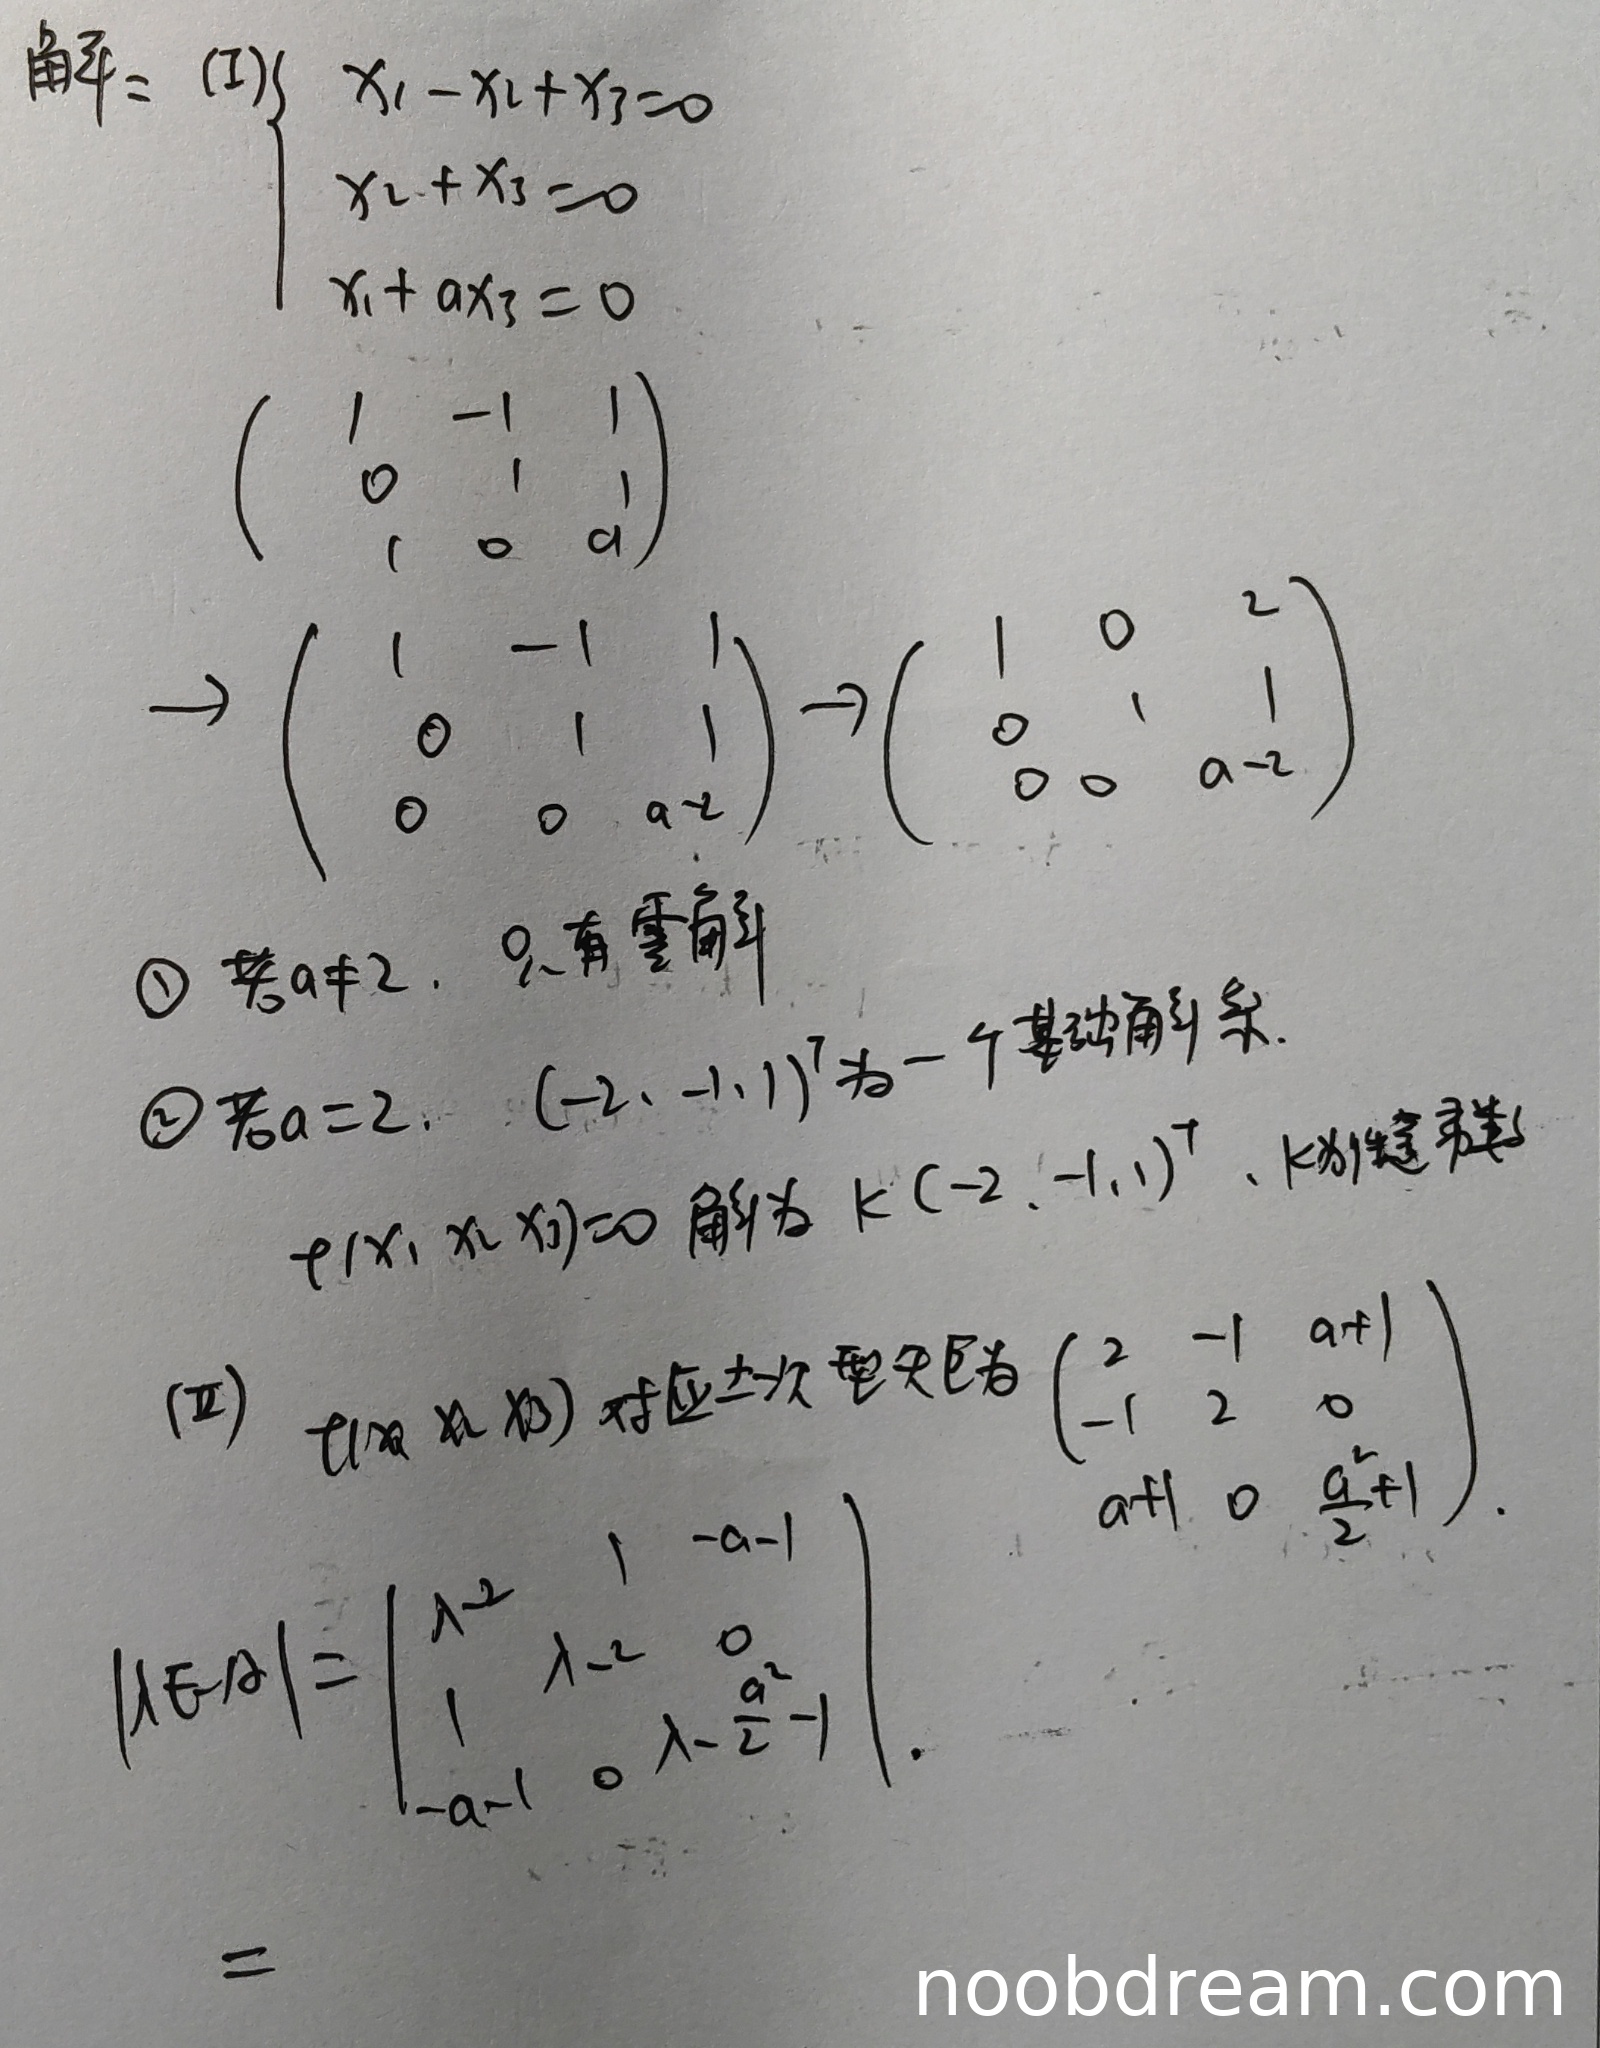 解: (I) { x₁-x₂+x₃=0
x₂+x₃=0
x₁+ax₃=0
( 1 -1 1
0 1 1
1 0 a )
→ ( 1 -1 1
0 1 1
0 0 a-2 ) → ( 1 0 2
0 1 1
0 0 a-2 )
① 若a≠2. 只有零解
② 若a=2. (-2、-1、1)ᵀ为一个基础解系.
f(x₁ x₂ x₃)=0 解为 k(-2、-1、1)ᵀ、k为任意常数
(II) f(x₁ x₂ x₃) 对应二次型矩阵为 ( 2 -1 a+1
-1 2 0
a+1 0 a²/2+1 ).
|λE-A| = | λ-2 1 -a-1
1 λ-2 0
-a-1 0 λ-a²/2-1 |.
=
noobdream.com